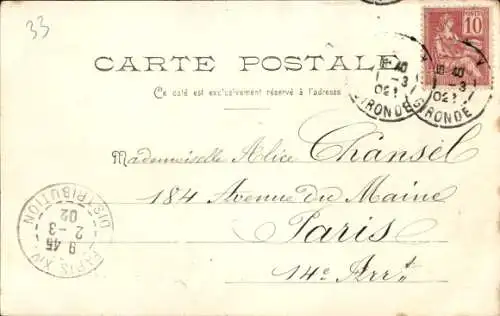 33
POSTES
10
CARTE POSTALE
Ce côté est exclusivement réservé à l'adresse
1 -3
02
GIRONDE
1 -3
02
GIRONDE
Mademoiselle Alice Chansel
184 Avenue du Maine
Paris
14e Arrt
PARIS XIV
9 45
2 -3
02
DISTRIBUTION